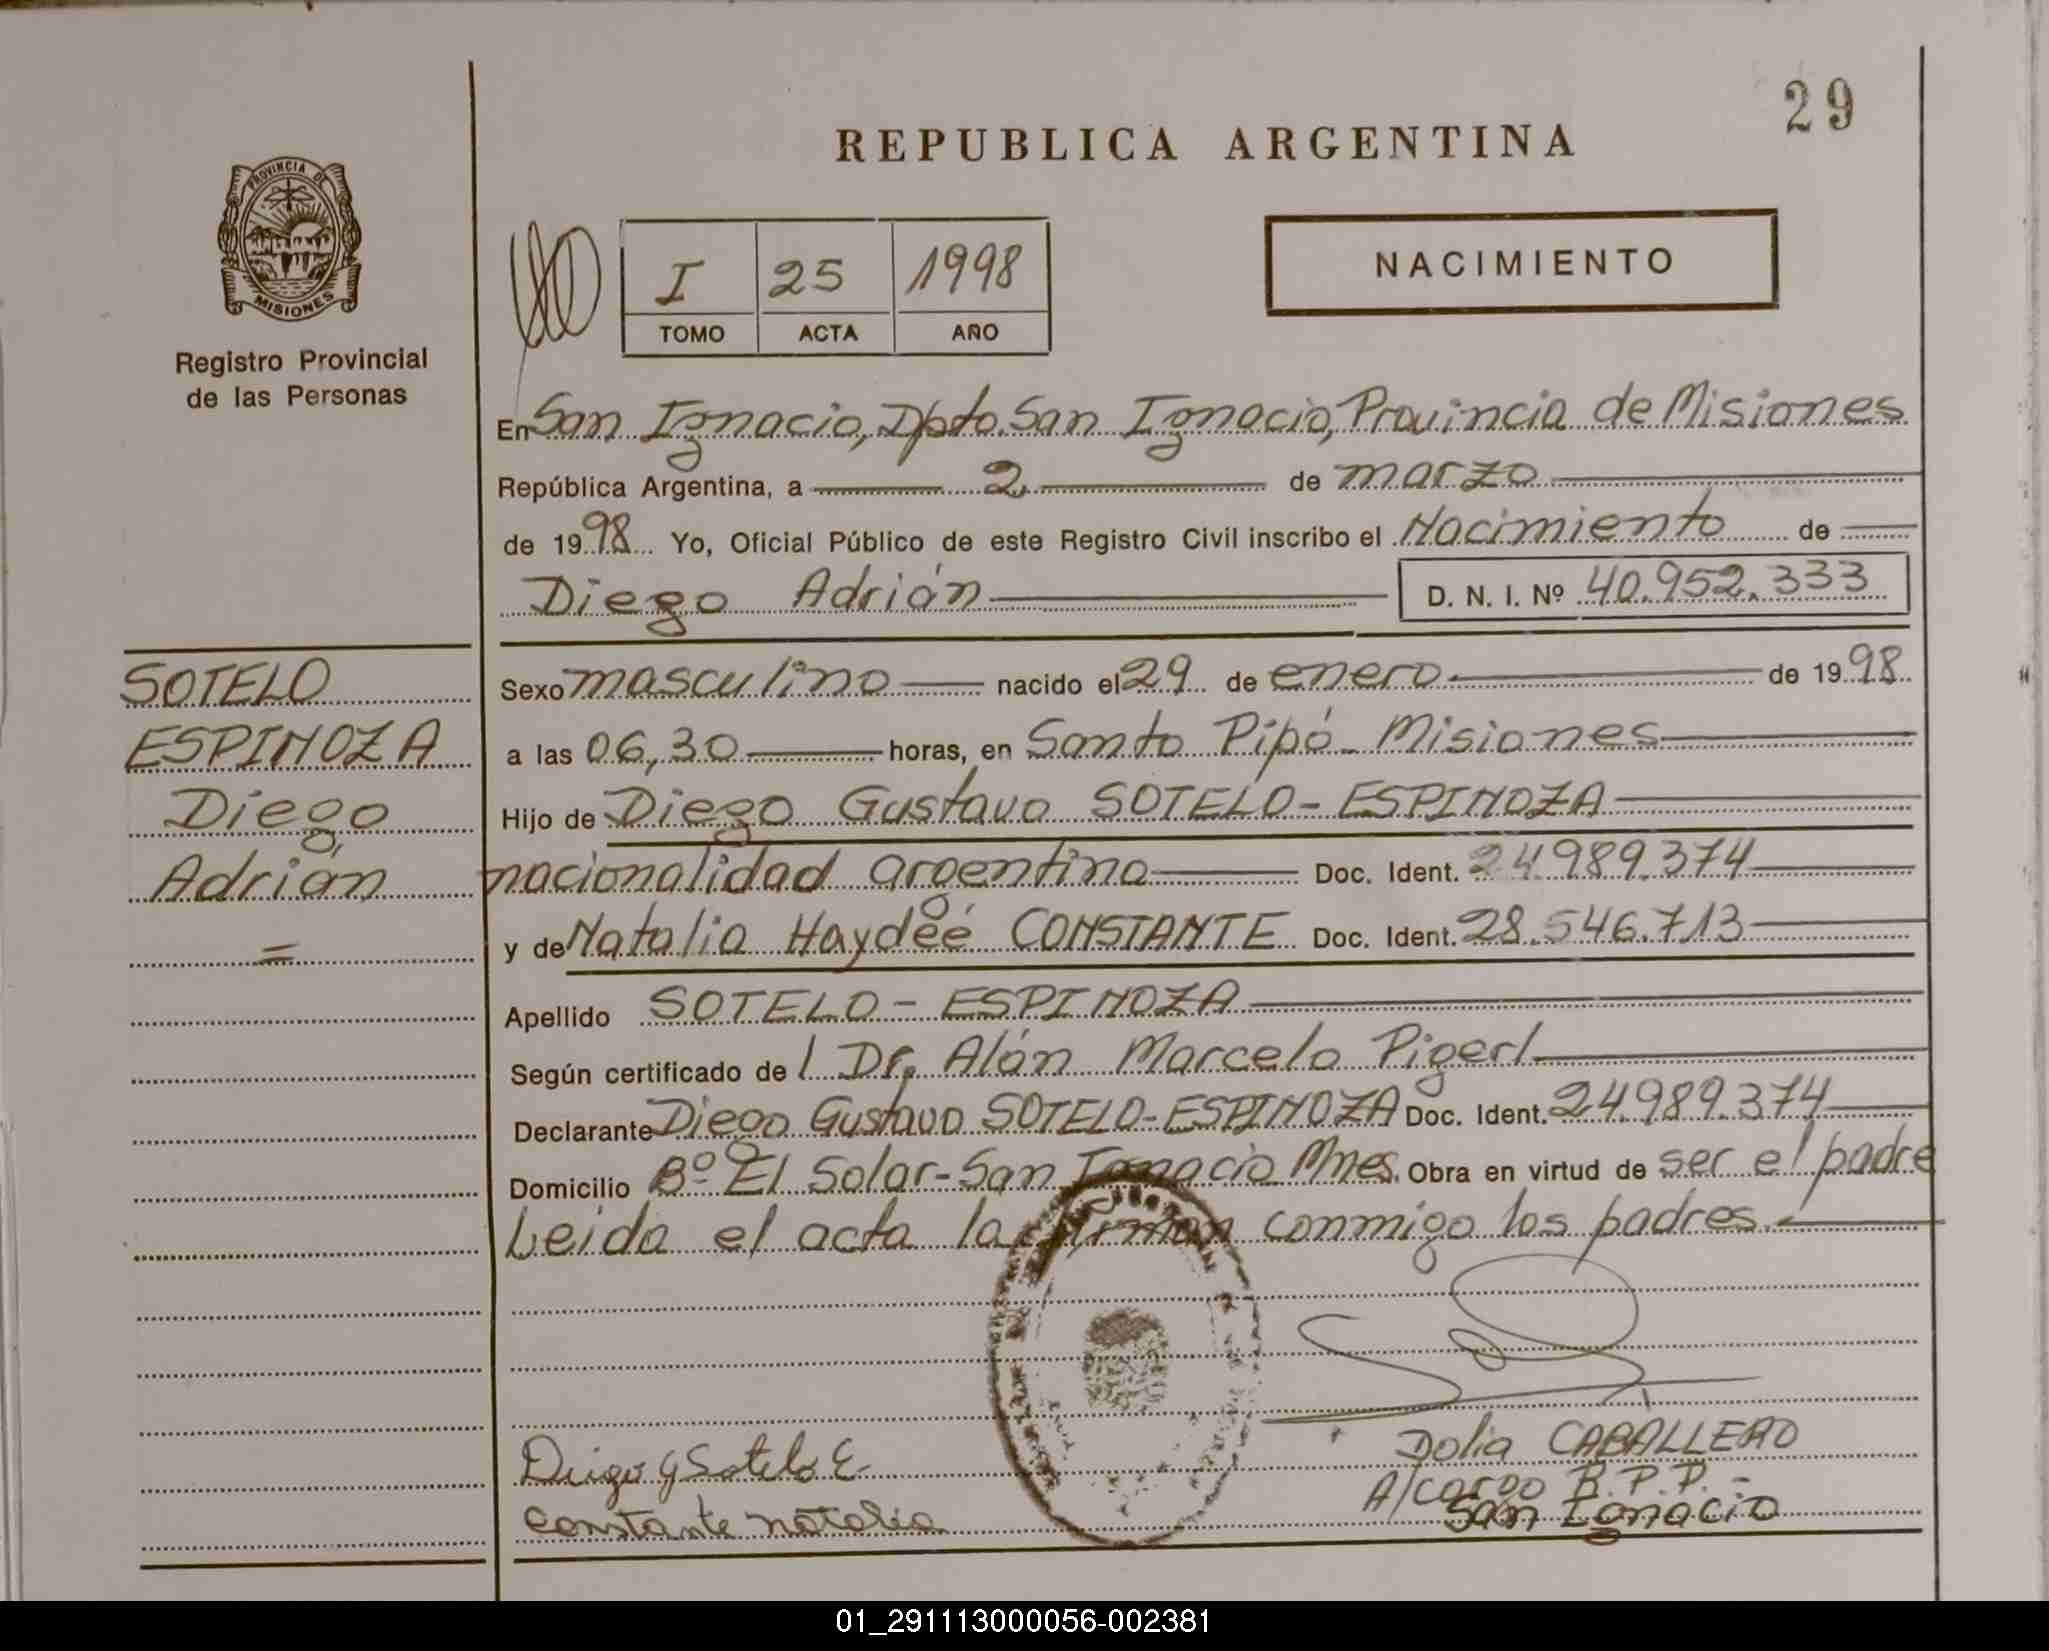 29
REPUBLICA ARGENTINA
PROVINCIA DE
MISIONES
Registro Provincial
de las Personas
I 25 1998
TOMO ACTA AÑO
NACIMIENTO
En San Ignacio, Dpto. San Ignacio, Provincia de Misiones
República Argentina, a 2 de marzo
de 1998 Yo, Oficial Público de este Registro Civil inscribo el Nacimiento de
Diego Adrián D. N. I. Nº 40.952.333
SOTELO
ESPINOZA
Diego
Adrián
=
Sexo masculino nacido el 29 de enero de 1998
a las 06,30 horas, en Santo Pipó - Misiones
Hijo de Diego Gustavo SOTELO - ESPINOZA
nacionalidad argentina Doc. Ident. 24.989.374
y de Natalia Haydeé CONSTANTE Doc. Ident. 28.546.713
Apellido SOTELO - ESPINOZA
Según certificado de l Dr. Alán Marcelo Pigerl
Declarante Diego Gustavo SOTELO-ESPINOZA Doc. Ident. 24.989.374
Domicilio Bº El Solar-San Ignacio Mnes. Obra en virtud de ser el padre
Leida el acta la firman conmigo los padres.
Diego G Sotelo E.
Constante Natalia
Dolia CABALLERO
A/cargo R.P.P. -
San Ignacio
01_291113000056-002381